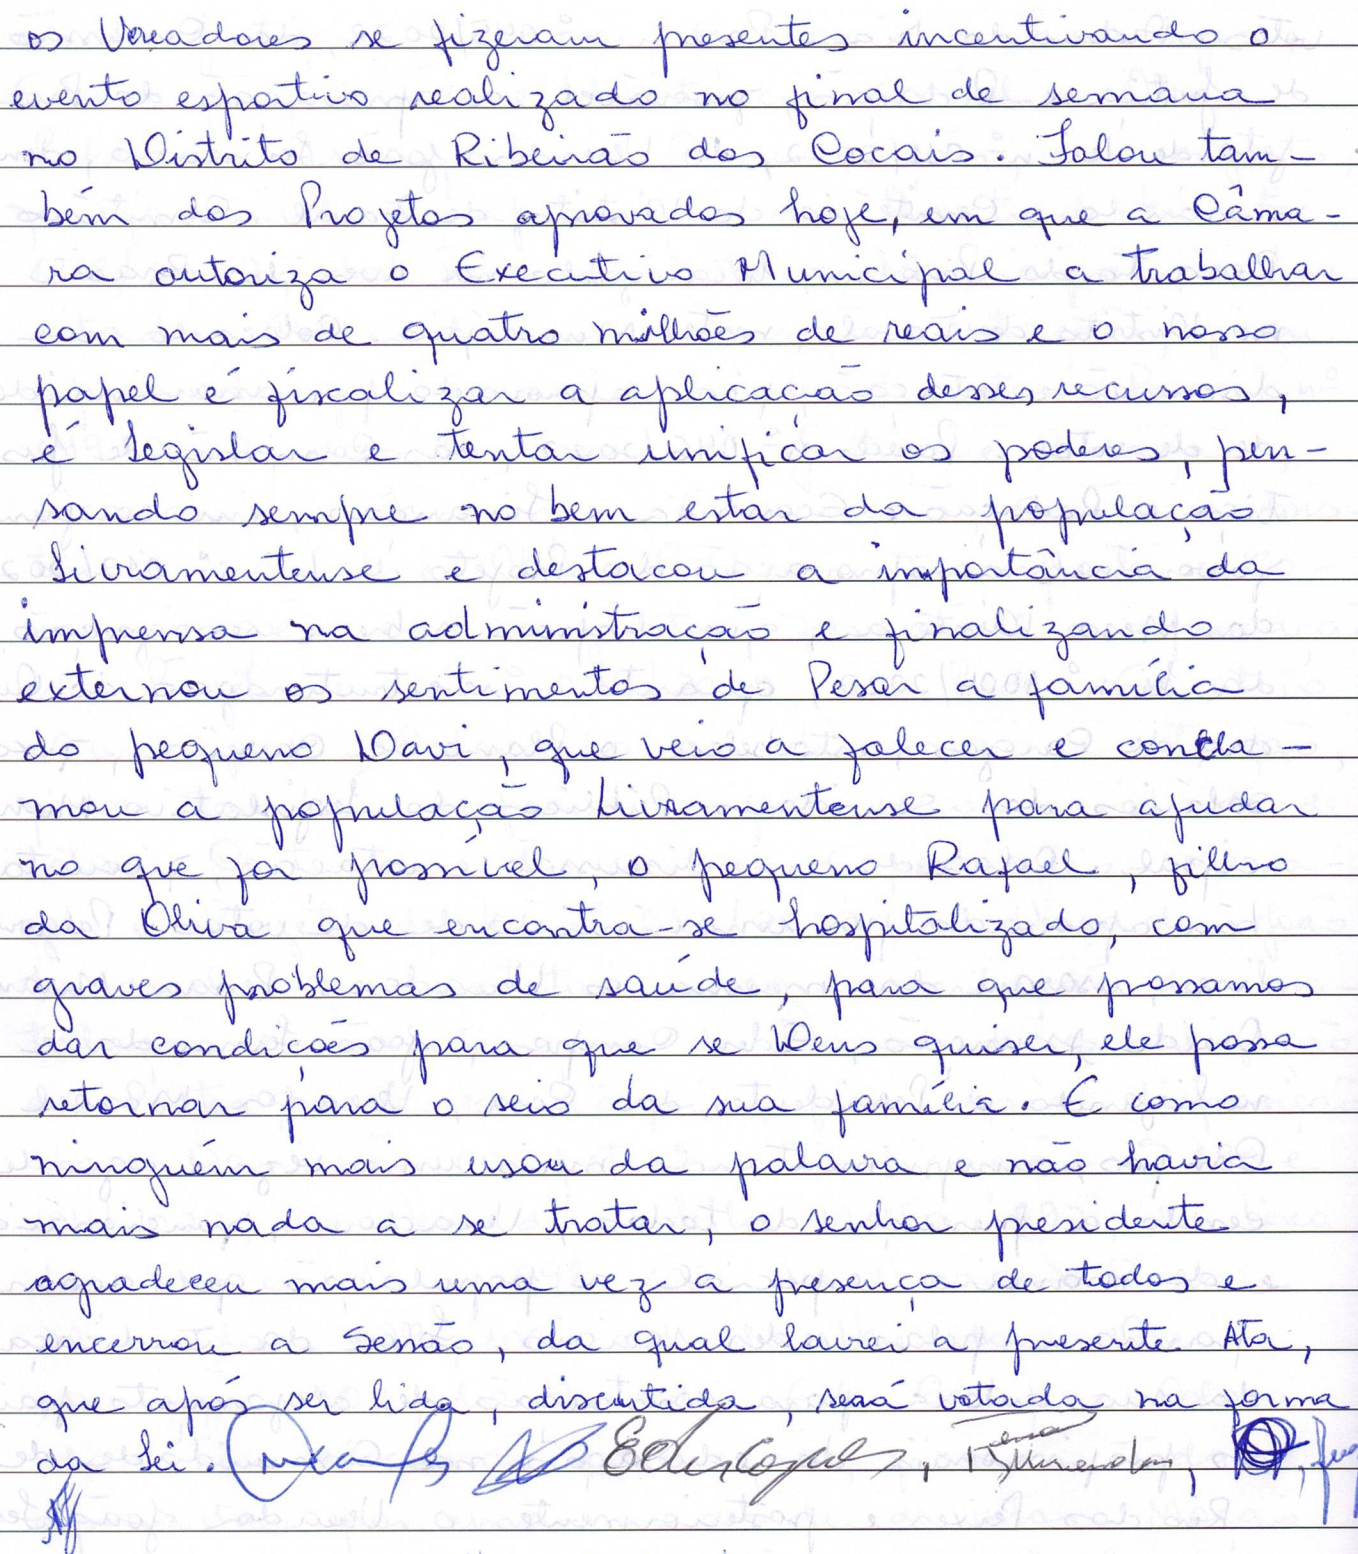 os Vereadores se fizeram presentes incentivando o
evento esportivo realizado no final de semana
no Distrito de Ribeirão dos Cocais. Falou tam-
bém dos Projetos aprovados hoje, em que a Câma-
ra autoriza o Executivo Municipal a trabalhar
com mais de quatro milhões de reais e o nosso
papel é fiscalizar a aplicação desses recursos,
é Legislar e tentar unificar os poderes, pen-
sando sempre no bem estar da população
Livramentense e destacou a importância da
imprensa na administração e finalizando
externou os sentimentos de Pesar a família
do pequeno Davi, que veio a falecer e concla-
mou a população Livramentense para ajudar
no que for possível, o pequeno Rafael, filho
da Oliva que encontra-se hospitalizado, com
graves problemas de saúde, para que possamos
dar condições para que se Deus quiser, ele possa
retornar para o seio da sua família. E como
ninguém mais usou da palavra e não havia
mais nada a se tratar, o senhor presidente
agradeceu mais uma vez a presença de todos e
encerrou a Sessão, da qual lavrei a presente Ata,
que após ser lida, discutida, será votada na forma
da Lei.